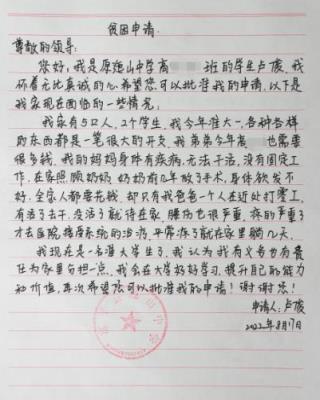 贫困申请
尊敬的领导:
您好,我是原巍山中学高 班的学生卢俊,我
怀着无比真诚的心希望您可以批准我的申请,以下是
我家现在面临的一些情况:
我家有5口人,2个学生,我今年准大一,各种各样
的东西都是一笔很大的开支,我弟弟今年高 也需要
很多钱,我的妈妈身体有疾病,无法干活,没有固定工
作,在家照顾奶奶,奶奶前几年做了手术,身体欠发不
好,全家人都要花钱,却只有我爸爸一个人在近处打零工,
有活了去干,没活了就待在家,腰伤也很严重,疼的严重了
才去医院,接受系统的治疗,平常疼了就在家里躺几天.
我现在是一名准大学生了,我认为我有义务也有责
任为家里分担一点,我会在大学好好学习,提升自己的能力
和价值,再次希望您可以批准我的申请!谢谢您!
申请人:卢俊
2022年8月17日